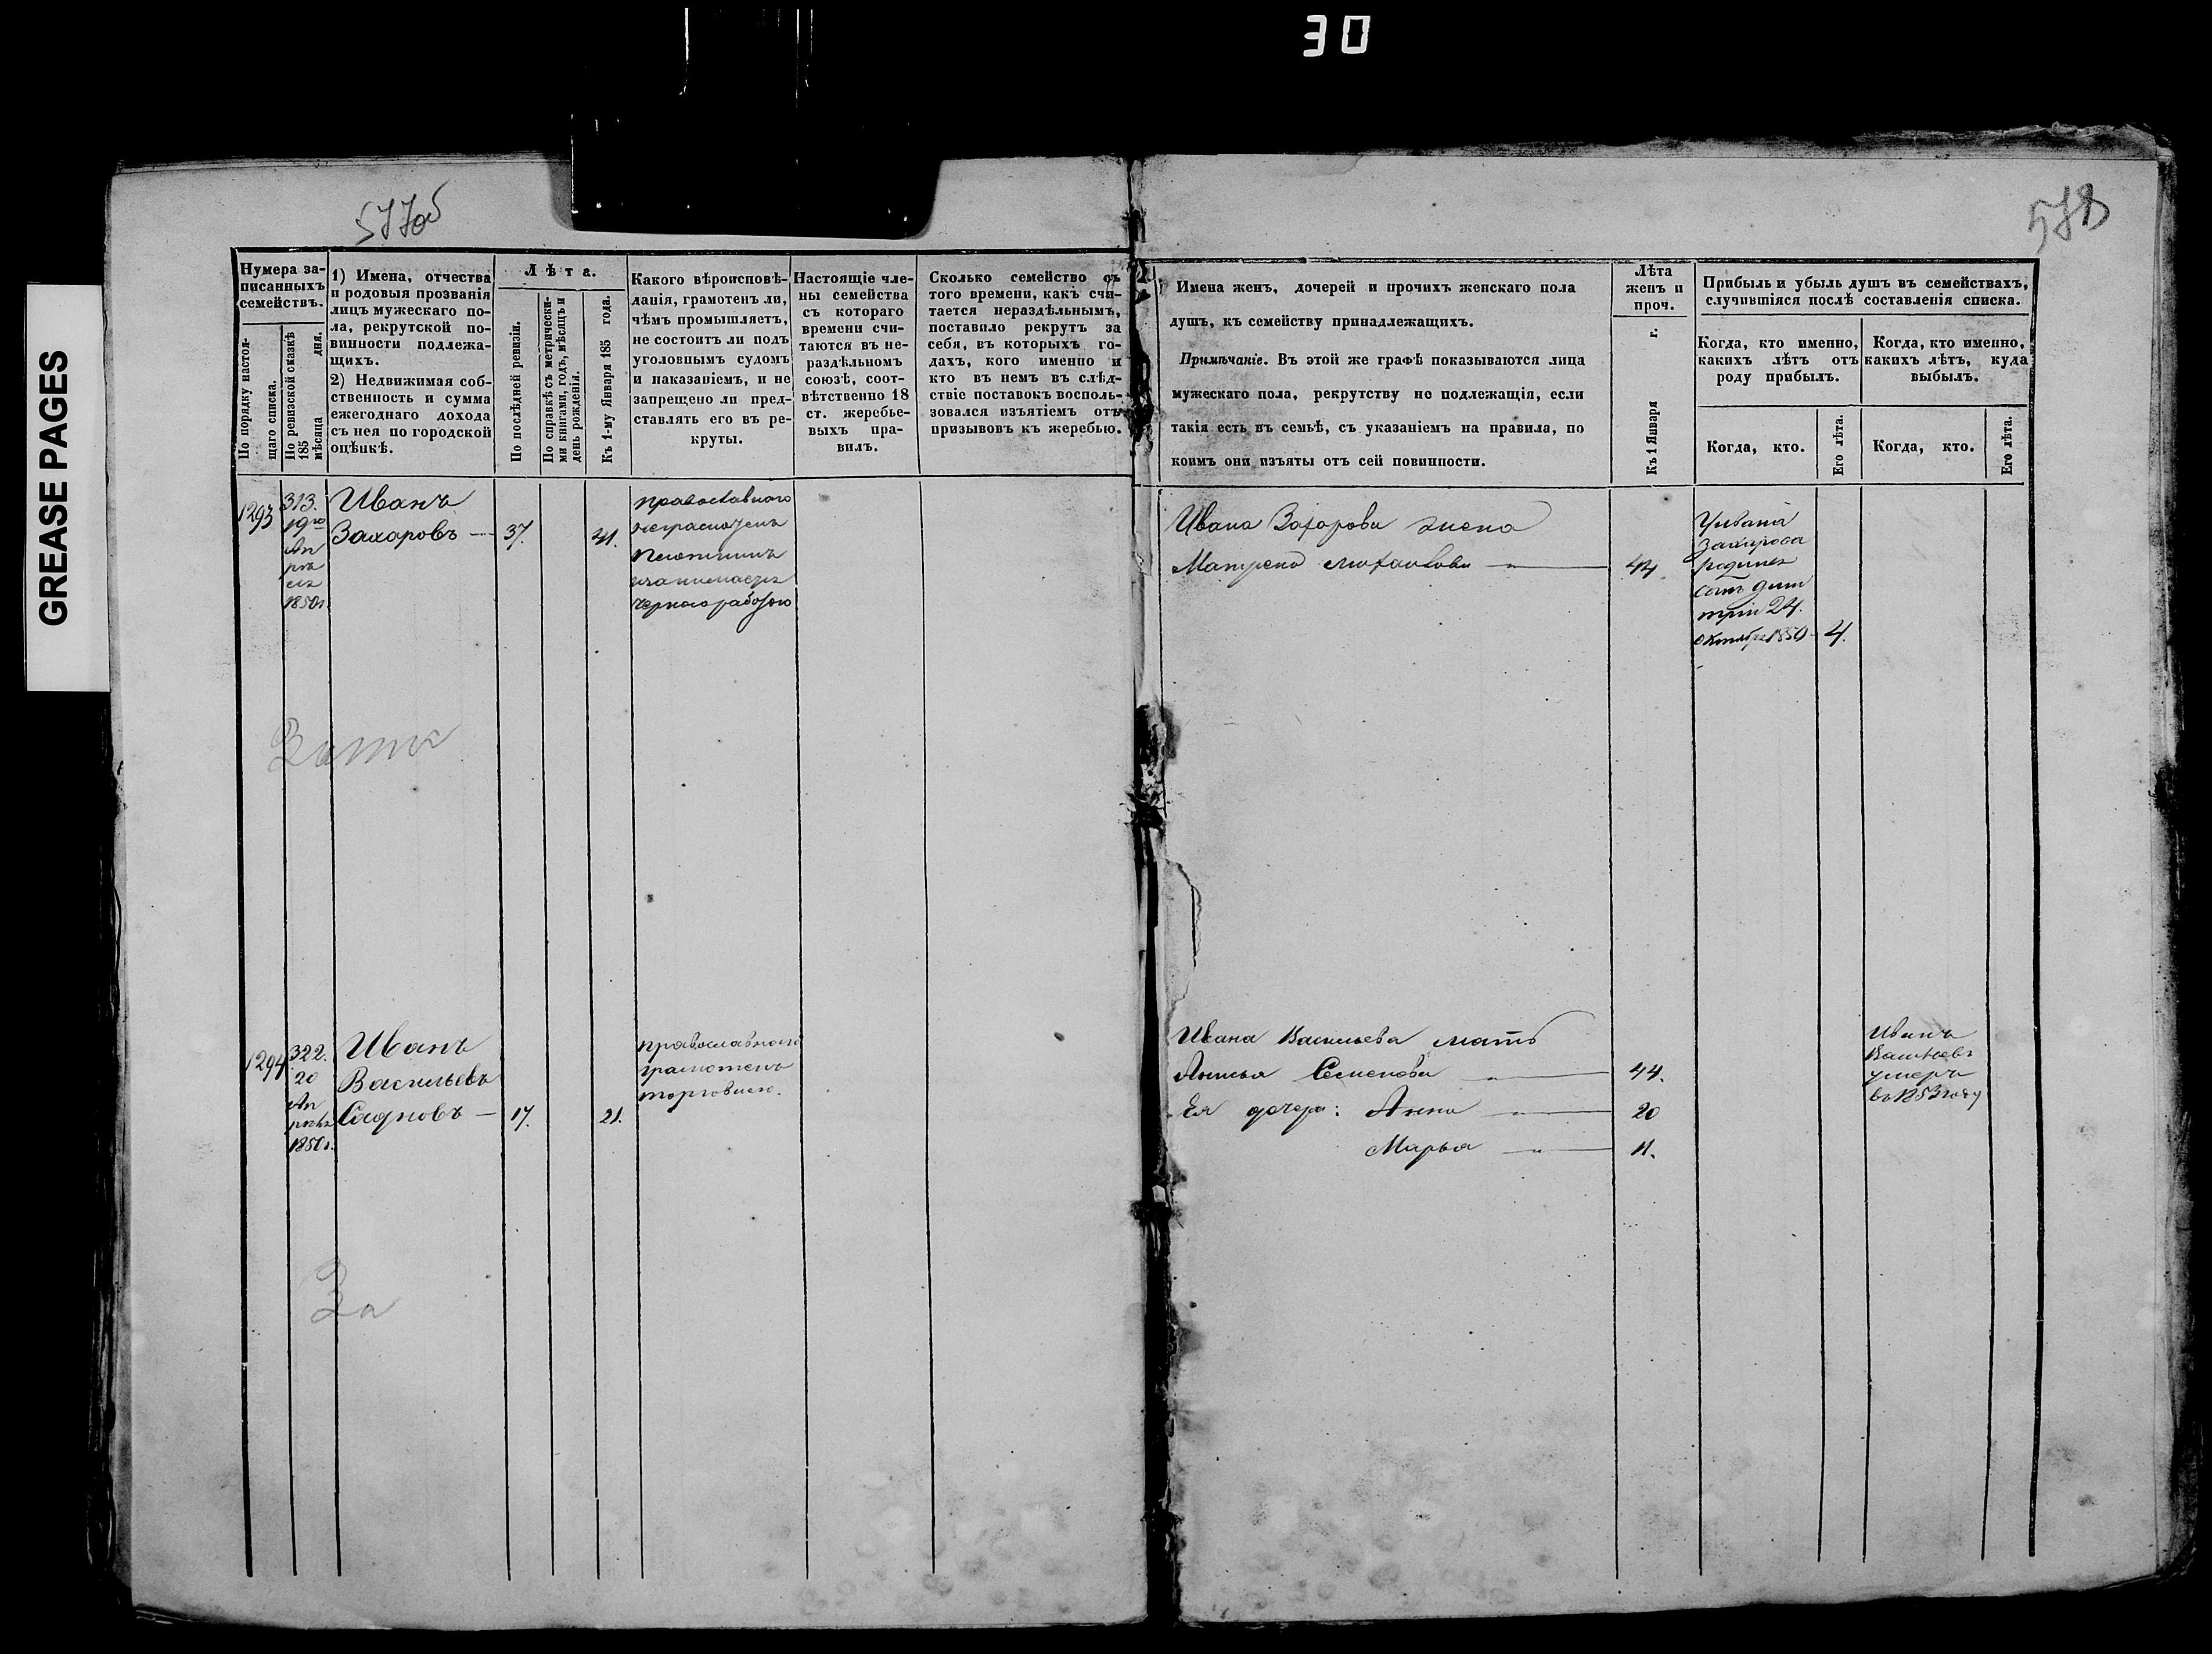 30
GREASE PAGES
577об
578
Нумера за-
писанныхъ
семействъ.
По порядку настоя-
щаго списка.
По ревизской сказкѣ
185
мѣсяца дня.
1) Имена, отчества
и родовыя прозванія
лицъ мужескаго по-
ла, рекрутской по-
винности подлежа-
щихъ.
2) Недвижимая соб-
ственность и сумма
ежегоднаго дохода
съ нея по городской
оцѣнкѣ.
Лѣта.
По послѣдней ревизіи.
По справкѣ съ метрически-
ми книгами, годъ, мѣсяцъ и
день рожденія.
Къ 1-му Января 185 года.
Какого вѣроисповѣ-
данія, грамотенъ ли,
чѣмъ промышляетъ,
не состоитъ ли подъ
уголовнымъ судомъ
и наказаніемъ, и не
запрещено ли пред-
ставлять его въ ре-
круты.
Настоящіе чле-
ны семейства
съ котораго
времени счи-
таются въ не-
раздѣльномъ
союзѣ, соот-
вѣтственно 18
ст. жеребье-
выхъ пра-
вилъ.
Сколько семейство съ
того времени, какъ счи-
тается нераздѣльнымъ,
поставило рекрутъ за
себя, въ которыхъ го-
дахъ, кого именно и
кто въ немъ въ слѣд-
ствіе поставокъ восполь-
зовался изъятіемъ отъ
призывовъ къ жеребью.
Имена женъ, дочерей и прочихъ женскаго пола
душъ, къ семейству принадлежащихъ.
Примѣчаніе. Въ этой же графѣ показываются лица
мужескаго пола, рекрутству не подлежащія, если
такія есть въ семьѣ, съ указаніемъ на правила, по
коимъ они изъяты отъ сей повинности.
Лѣта
женъ и
проч.
Къ 1 Января г.
Прибыль и убыль душъ въ семействахъ,
случившіяся послѣ составленія списка.
Когда, кто именно,
какихъ лѣтъ отъ
роду прибылъ.
Когда, кто именно,
какихъ лѣтъ, куда
выбылъ.
Когда, кто.
Его лѣта.
Когда, кто.
Его лѣта.
1293
313.
19го
Ап
рѣ
ля
1850г.
Иванъ
Захаровъ — 37. 41.
православнаго
неграмотенъ
занимается
черною работою
Ивана Захарова жена
Матрена Михайлова — 44
У Ивана
Захарова
родился
сынъ Дми
трій 24.
Октября 1850 - 4.
1294
322.
20
Ап
рѣля
1850г.
Иванъ
Васильевъ
Садковъ — 17. 21.
православнаго
грамотенъ
торговлею.
Ивана Васильева мать
Анисья Семенова — 44.
Ея дочери: Анна — 20
Марья — 11.
Иванъ
Васильевъ
умеръ
въ 1853 году
За